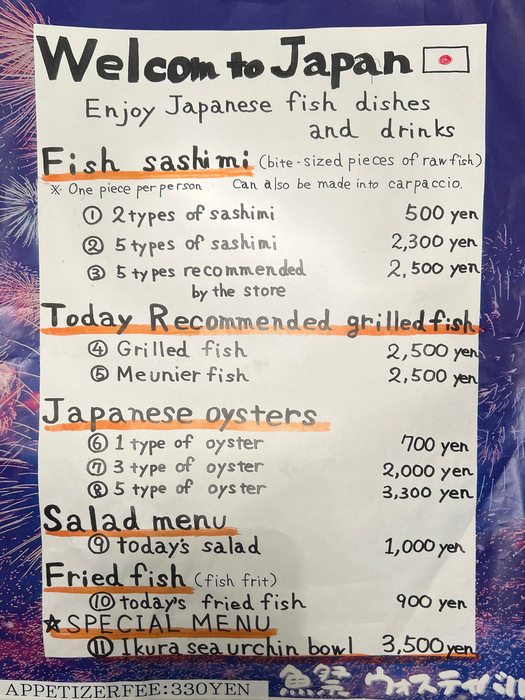 Welcom to Japan
Enjoy Japanese fish dishes
and drinks
Fish sashimi (bite-sized pieces of raw fish)
※ One piece per person. Can also be made into carpaccio.
① 2 types of sashimi 500 yen
② 5 types of sashimi 2,300 yen
③ 5 types recommended 2,500 yen
by the store
Today Recommended grilled fish
④ Grilled fish 2,500 yen
⑤ Meunier fish 2,500 yen
Japanese oysters
⑥ 1 type of oyster 700 yen
⑦ 3 type of oyster 2,000 yen
⑧ 5 type of oyster 3,300 yen
Salad menu
⑨ today's salad 1,000 yen
Fried fish (fish frit)
⑩ today's fried fish 900 yen
☆SPECIAL MENU
⑪ Ikura sea urchin bowl 3,500 yen
APPETIZERFEE:330YEN
魚祭 ウォスティバル